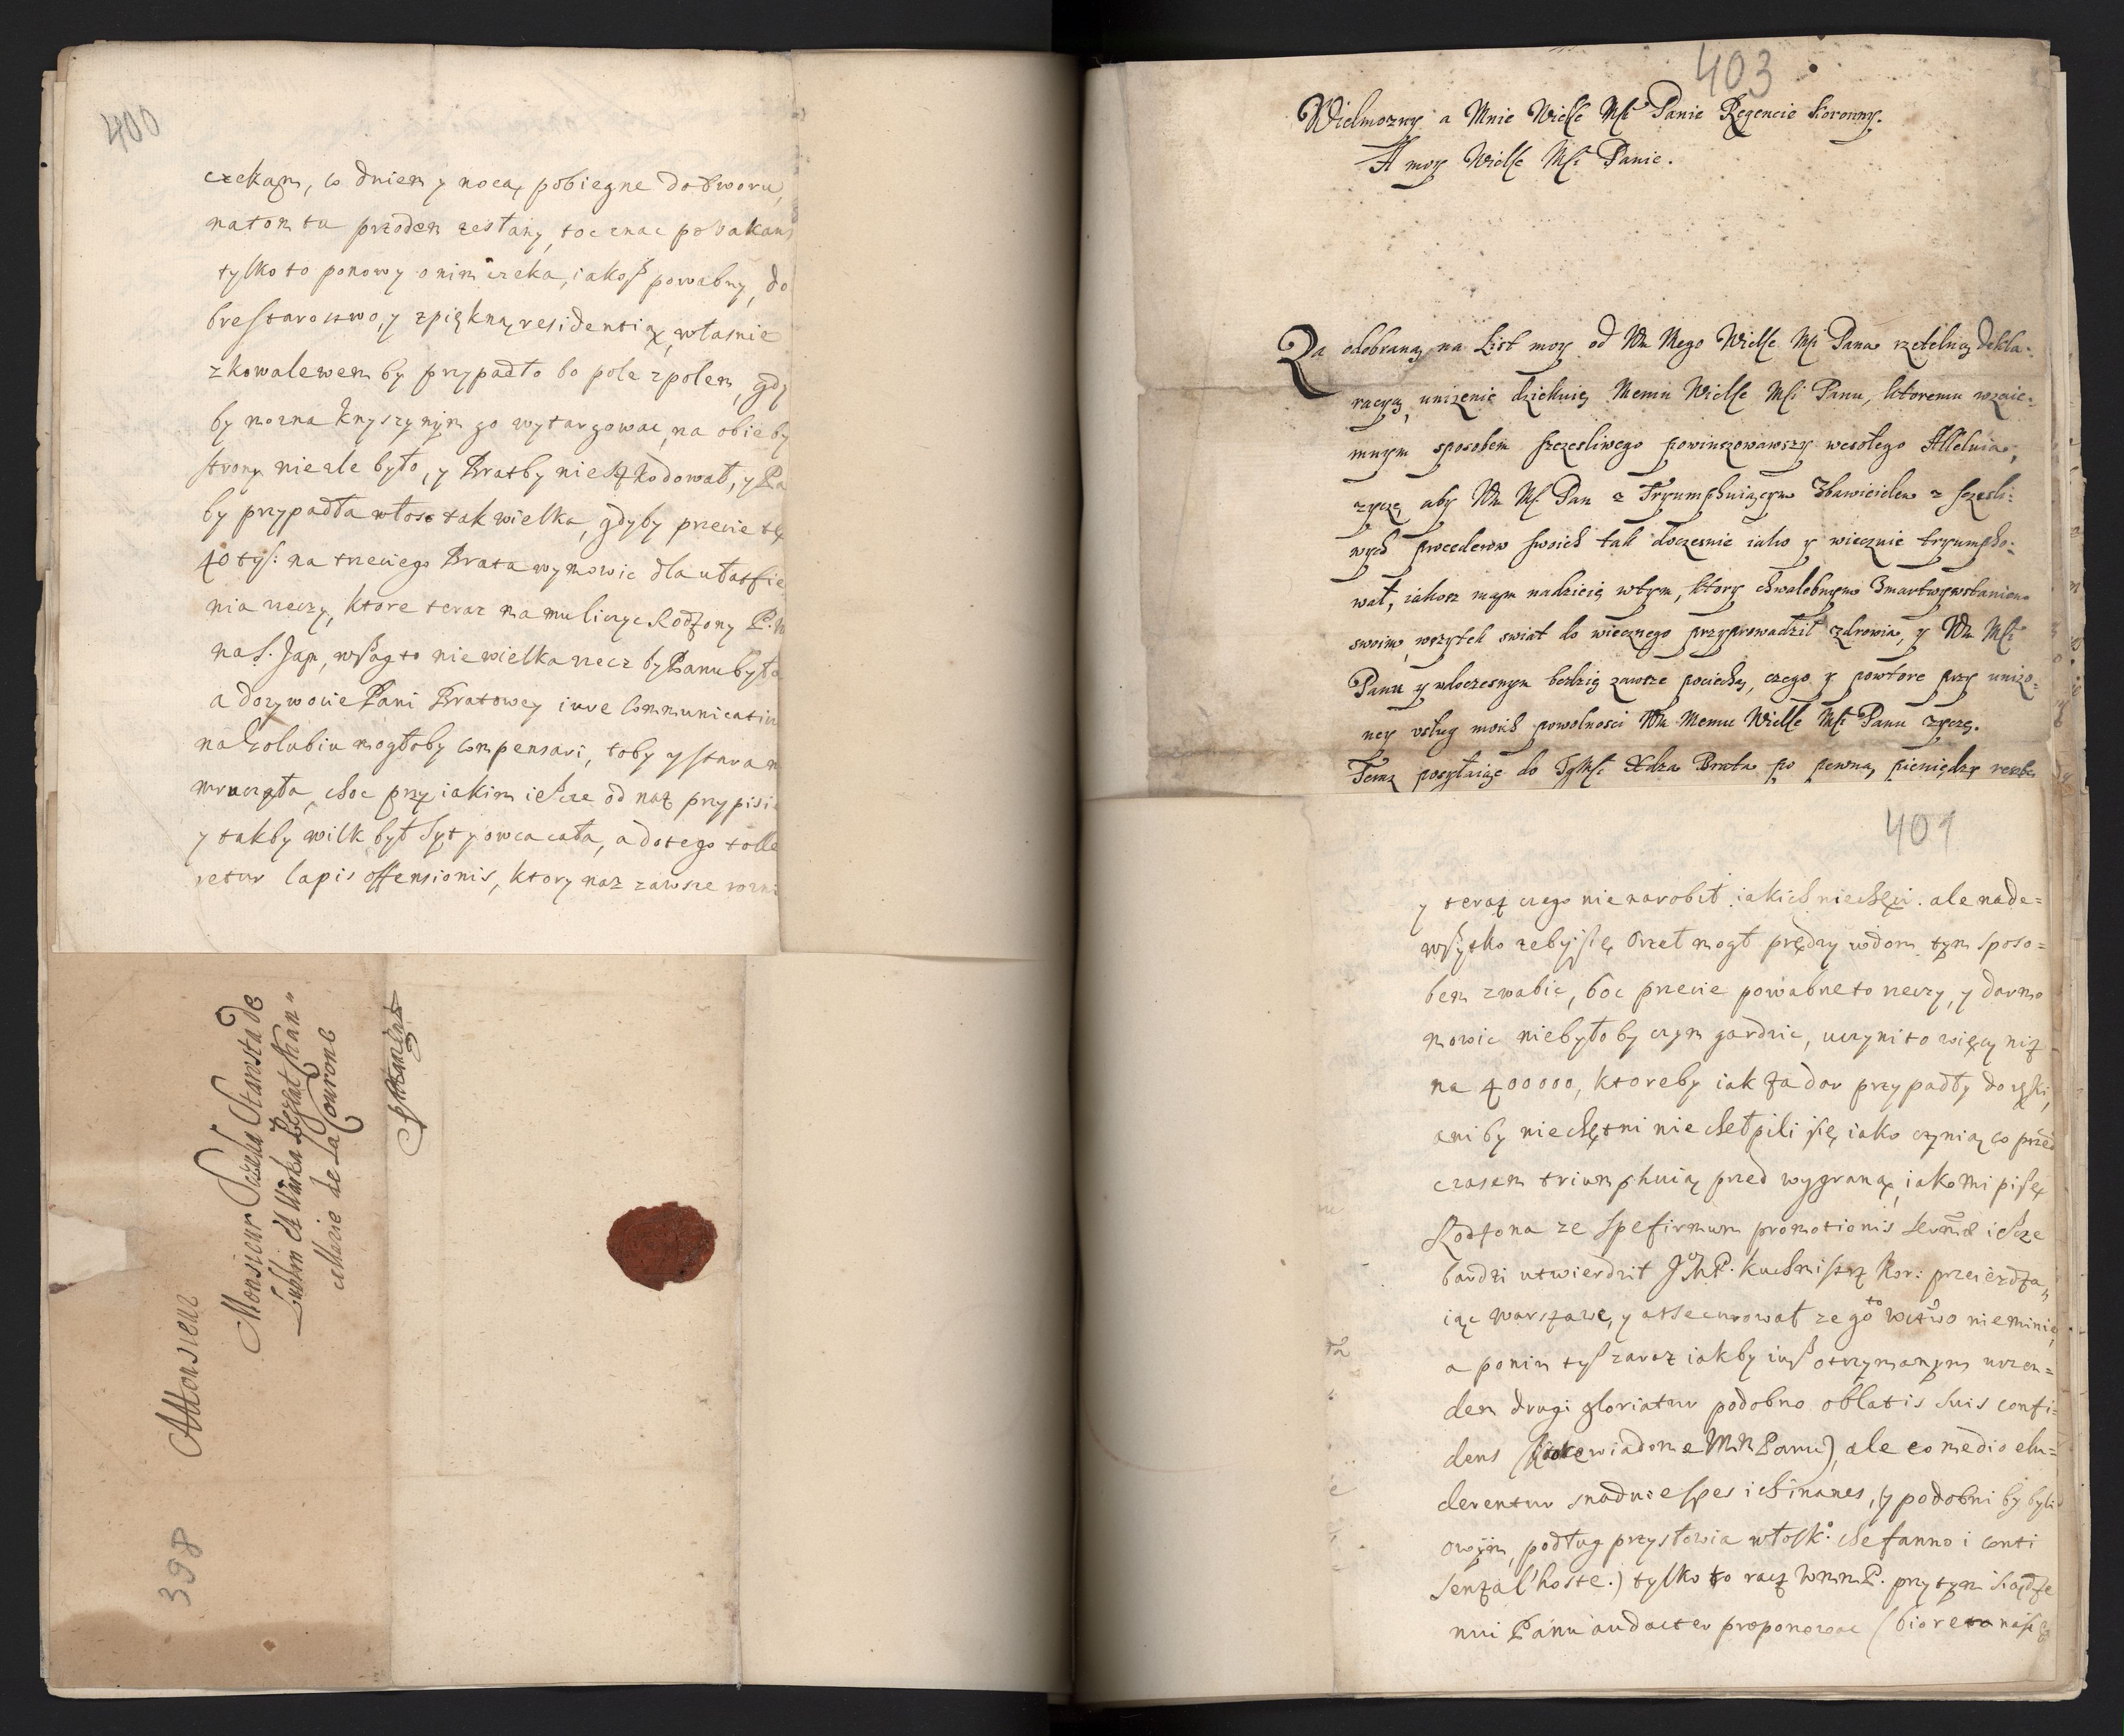 400
czekam, co dniem y nocą pobiegne do dworu,
na tom tu przodem zesłany, toc znac po Vakans
tylko to ponowy o nim czeka, iakoß powabny, do
bre starostwo, y z piękną residentią, własnie
z kowalewem by przypadło bo pole z polem, gdy
by mozna knyszynym go wytargowac, na obie by
strony nie zle było, y Brat by nie szkodował, y Pa
by przypadła włosc tak wielka, gdyby przecie tę
40 tys: na trzeciego Brata wymowic dla ułatfie
nia rzeczy, ktore teraz ma mu liczyc Rodzony P.
na S. Jan, wszag to nie wielka rzecz by Panu było
a dozywocie Pani Bratowey iure Communicatiu
na Golubiu mogłoby compensari, toby y stara n
mruczała, choc przy iakim ieszcze od naz przypisie
y takby wilk był syt y owca cała, a do tego tolle
retur lapis offensionis, ktory naz zawsze rozni
398
Monsieur
Monsieur Szczuka Starosta de
Lublin et Warka Regent Kan"
cellarie de La Couronne
403
Wielmozny a Mnie Wielce Mśi Panie Regencie Koronny.
A moy Wielce Mśi Panie.
Za odebraną na List moy od Wm Mego Wielce Mśi Pana rzetelną dekla:
racyą, unizenie dziekuię Memu Wielce Mśi Panu, ktoremu wzaie:
mnym sposobem szczesliwego powinszowawszy wesołego Alleluia,
zyczę, aby Wm Mśi Pan z Tryumphuiącym Zbawicielem z sczesli:
wych procederow swoich tak doczesnie iako y wiecznie tryumpho:
wał, iakosz mam nadzieię wtym, ktory chwalebnym Zmartwywstaniem
swoim, wszytek swiat do wiecznego przyprowadził zdrowia, y Wm Mśi
Panu y wdoczesnym bedzie zawsze pociechą, czego y powtore przy unizo:
ney usług moich powolnosci Wm Memu Wielce Mśi Panu zyczę.
Teraz posyłaiąc do Jgmśi Xdza Brata po pewną pieniędzy resztę
401
y teraz czego nie narobił iakich niechęci. ale nade=
wszytko zeby się Orzeł mogł prędzy wdom tym sposo=
bem zwabic, boc przecie powabne to rzeczy, y darmo
mowic niebyłoby czym gardzic, uczyni to więcy niz
na 400000, ktoreby iak za dor przypadły do ręki,
ani by niechętni nie chełpili się, iako czynią co przed
czasem triumphuią przed wygraną, iako mi piszę
Rodzona ze spe firmum promotionis sermẽ ieszcze
bardzi utwierdził JM P. Kuchmistrz Kor: przeiezdza„
iąc Warszawe, y assecurował ze go to wctwo nie minie,
a po nim tyß zaraz iakby iuß otrzymanym urzen=
dem drugi gloriatur podobno oblatis suis confi=
dens wiadome WM Panu), ale eo medio elu=
derentur snadnie spes ich inanes, (y podobni by byli
owym, podług przysłowia włosk.° che fanno i conti
senza l'hoste.) tylko to racz WmmP. przy tym
mu Panu audacter proponowac (biore to na się